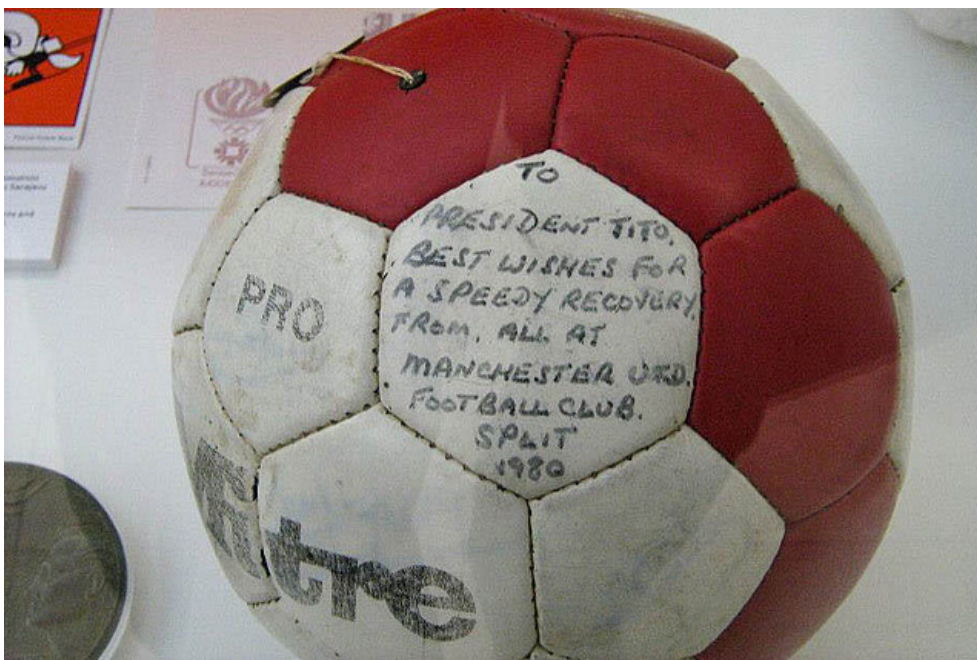 TO
PRESIDENT TITO.
BEST WISHES FOR
A SPEEDY RECOVERY
FROM, ALL AT
MANCHESTER UTD.
FOOTBALL CLUB.
SPLIT
1980
PRO
mitre
Sarajevo